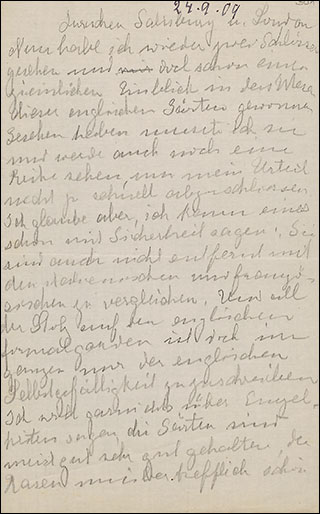 24.9.09
zwischen Salisbury u. London
Nun habe ich wieder zwei Schlösser
gesehen und doch schon einen
ziemlichen Einblick in das Wesen
dieser englischen Gärten gewonnen
Gesehen haben musste ich sie
und werde auch noch eine
Reihe sehen, um mein Urteil
nicht zu schnell abzuschliessen
Ich glaube aber, ich kann eines
schon mit Sicherheit sagen: Sie
sind auch nicht entfernt mit
den italienischen und französi-
sischen zu vergleichen. Und all
der Stolz auf den englischen
formalgarden ist doch im
ganzen nur der englischen
Selbstgefälligkeit zuzuschreiben
Ich will garnichts über Einzel-
heiten sagen die Gärten sind
meist gut sehr gut gehalten, der
Rasen trefflich schön